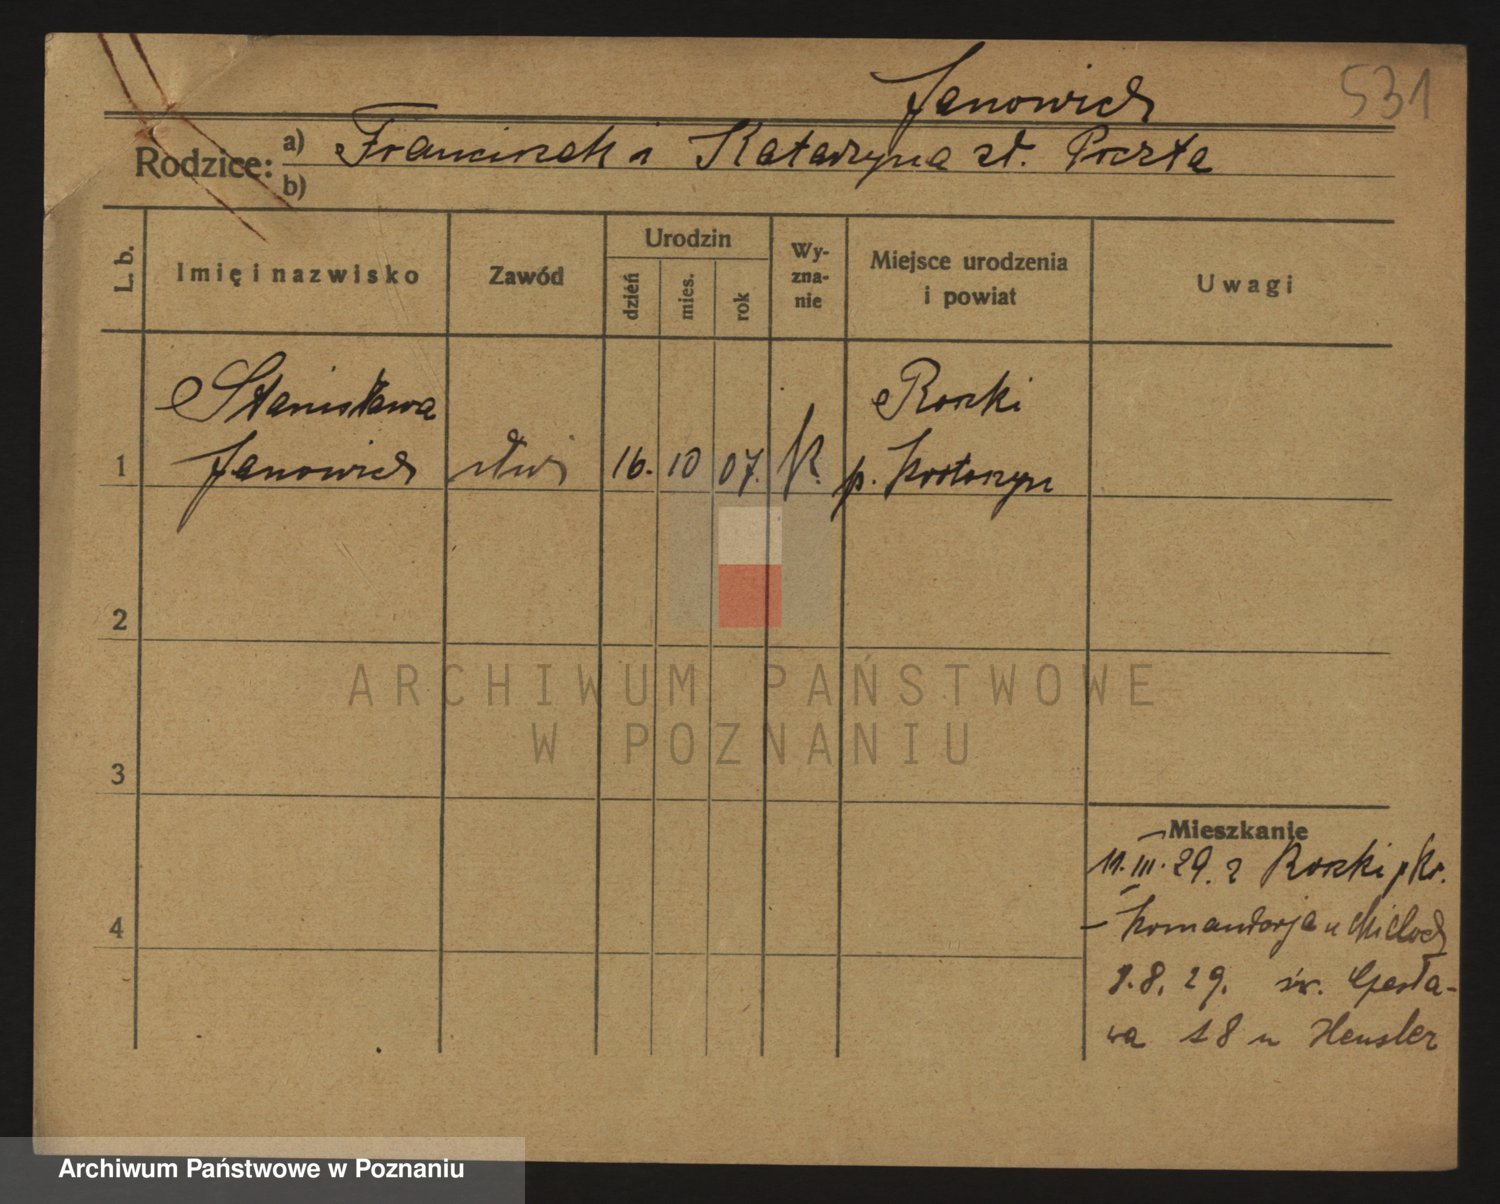 531
Janowicz
Rodzice: a) Franciszek i Katarzyna zd. Poczta
b)
L. b.
Imię i nazwisko
Zawód
Urodzin
dzień
mies.
rok
Wy-
zna-
nie
Miejsce urodzenia
i powiat
Uwagi
Stanisława
Roszki
1 Janowicz 16. 10 07. k. p. Krotoszyn
2
3
4
Mieszkanie
11.III.29. z Roszki p Kr.
- Komandorja u
8. 29. św.
wa 18 u Hensler
ARCHIWUM PAŃSTWOWE
W POZNANIU
Archiwum Państwowe w Poznaniu